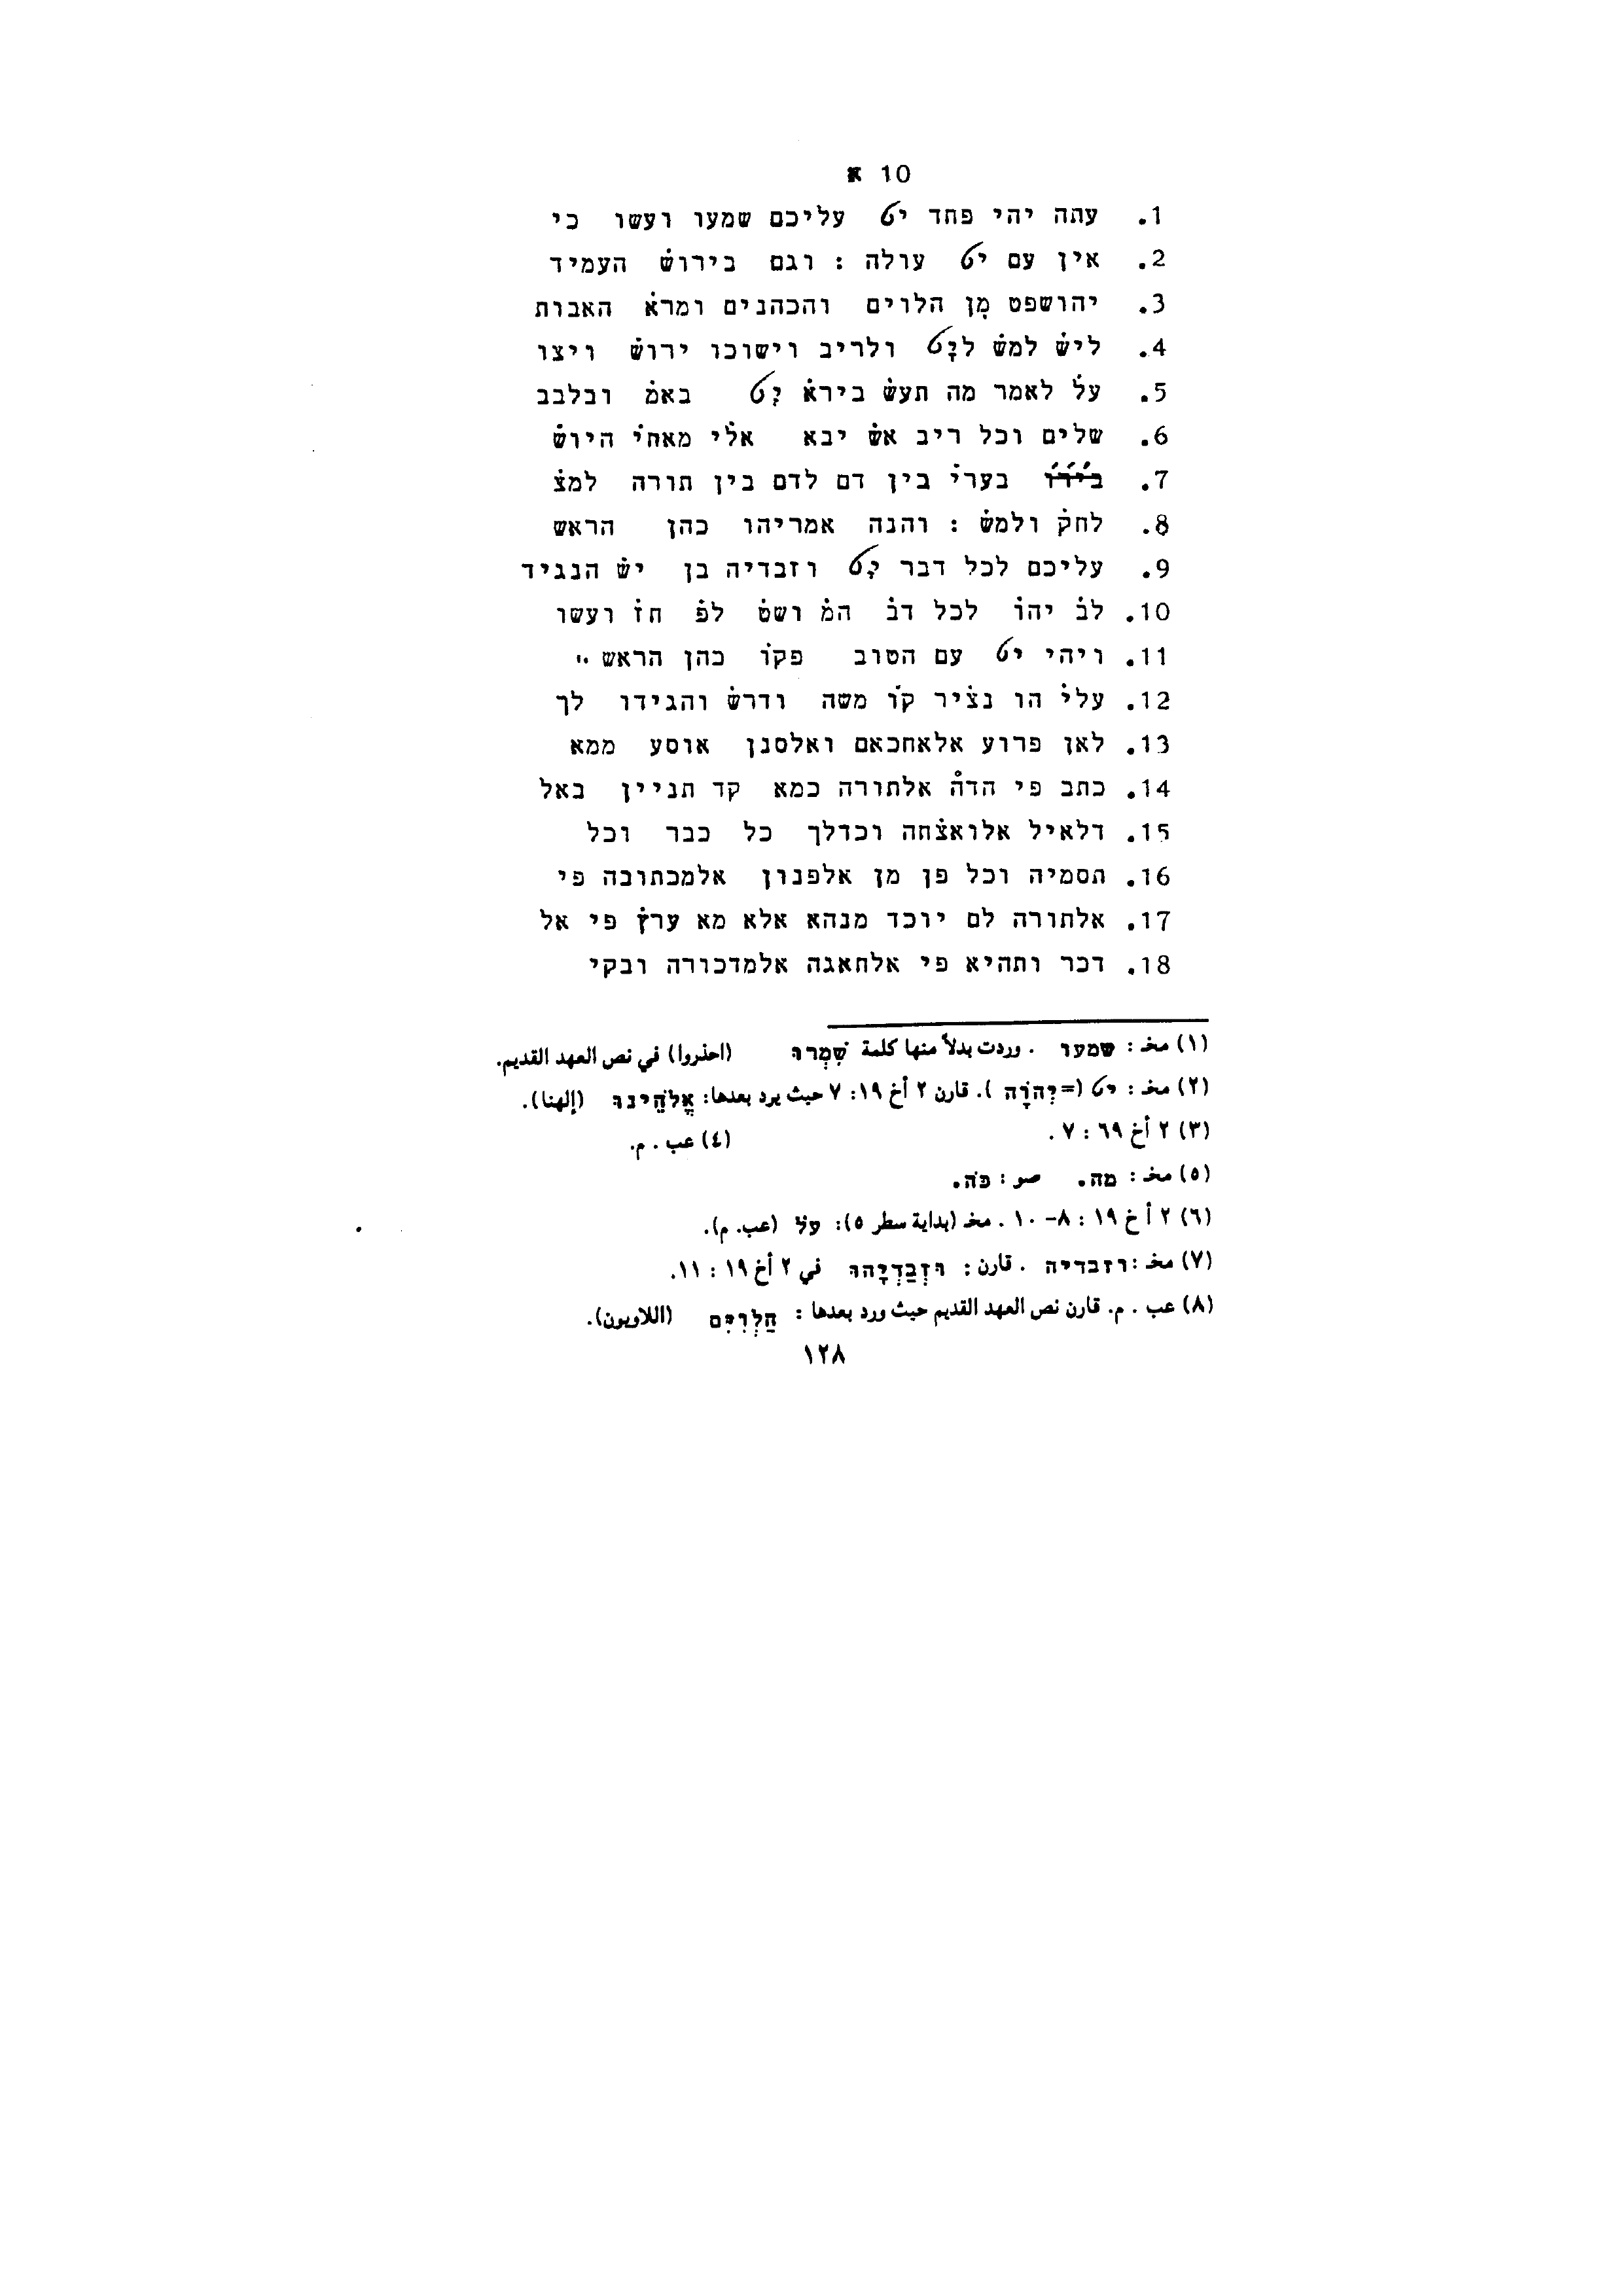 10 א
1. עתה יהי פחד יי עליכם שמעו ועשו כי
2. אין עם יי עולה : וגם בירוש̇ העמיד
3. יהושפט מן הלוים והכהנים ומרא̇ האבות
4. ליש̇ למש̇ ליי ולריב וישובו ירוש̇ ויצו
5. על̇ לאמר מה תעש̇ בירא̇ יי באמ̇ ובלבב
6. שלים וכל ריב אש̇ יבא אלי̇ מאחי̇ היוש̇
7. בערי̇ בין דם לדם בין תורה למצ̇
8. לחק̇ ולמש̇ : והנה אמריהו כהן הראש
9. עליכם לכל דבר יי וזבדיה בן יש̇ הנגיד
10. לב̇ יהו̇ לכל דב̇ המ̇ ושט̇ לפ̇ חז̇ ועשו
11. ויהי יי עם הטוב פקו̇ כהן הראש ״
12. עלי̇ הו נצ̇יר קו̇ משה ודרש̇ והגידו לך
13. לאן פרוע אלאחכאם ואלסנן אוסע ממא
14. כתב פי הדה̇ אלתורה כמא קד תניין באל
15. דלאיל אלואצ̇חה וכדלך כל כבר וכל
16. תסמיה וכל פן מן אלפנון אלמכתובה פי
17. אלתורה לם יוכד מנהא אלא מא ערץ̇ פי אל
18. דכר ותהיא פי אלחאגה אלמדכורה ובקי
(١) مخـ : שמעו . وردت بدلاً منها كلمة שִׁמְרוּ (احذروا) في نص العهد القديم.
(٢) مخـ : יי (= יְהוָֹה ). قارن ٢ أخ ١٩: ٧ حيث يرد بعدها: אֱלֹהֵינוּ (إلهنا).
(٣) ٢ أخ ٦٩ : ٧ . (٤) عب . م.
(٥) مخـ : מה. صو : כֹּה.
(٦) ٢ أ خ ١٩ : ٨- ١٠ . مخـ (بداية سطر ٥): על̇ (عب. م).
(٧) مخـ : וזבדיה . قارن : וּזְבַדְיָהוּ في ٢ أخ ١٩ : ١١.
(٨) عب . م. قارن نص العهد القديم حيث ورد بعدها : הַלְוִיִּם (اللاويون).
١٢٨